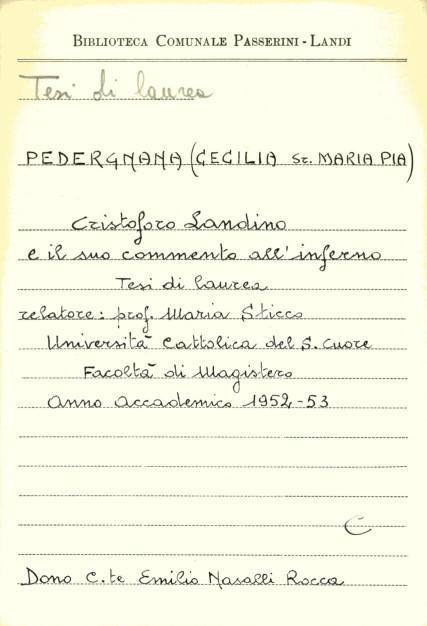 BIBLIOTECA COMUNALE PASSERINI - LANDI
Tesi di laurea
PEDERGNANA (CECILIA Sr. MARIA PIA)
Cristoforo Landino
e il suo commento all'inferno
Tesi di laurea
relatore: prof. Maria Sticco
Università Cattolica del S. Cuore
Facoltà di Magistero
Anno Accademico 1952-53
C
Dono C.te Emilio Nasalli Rocca